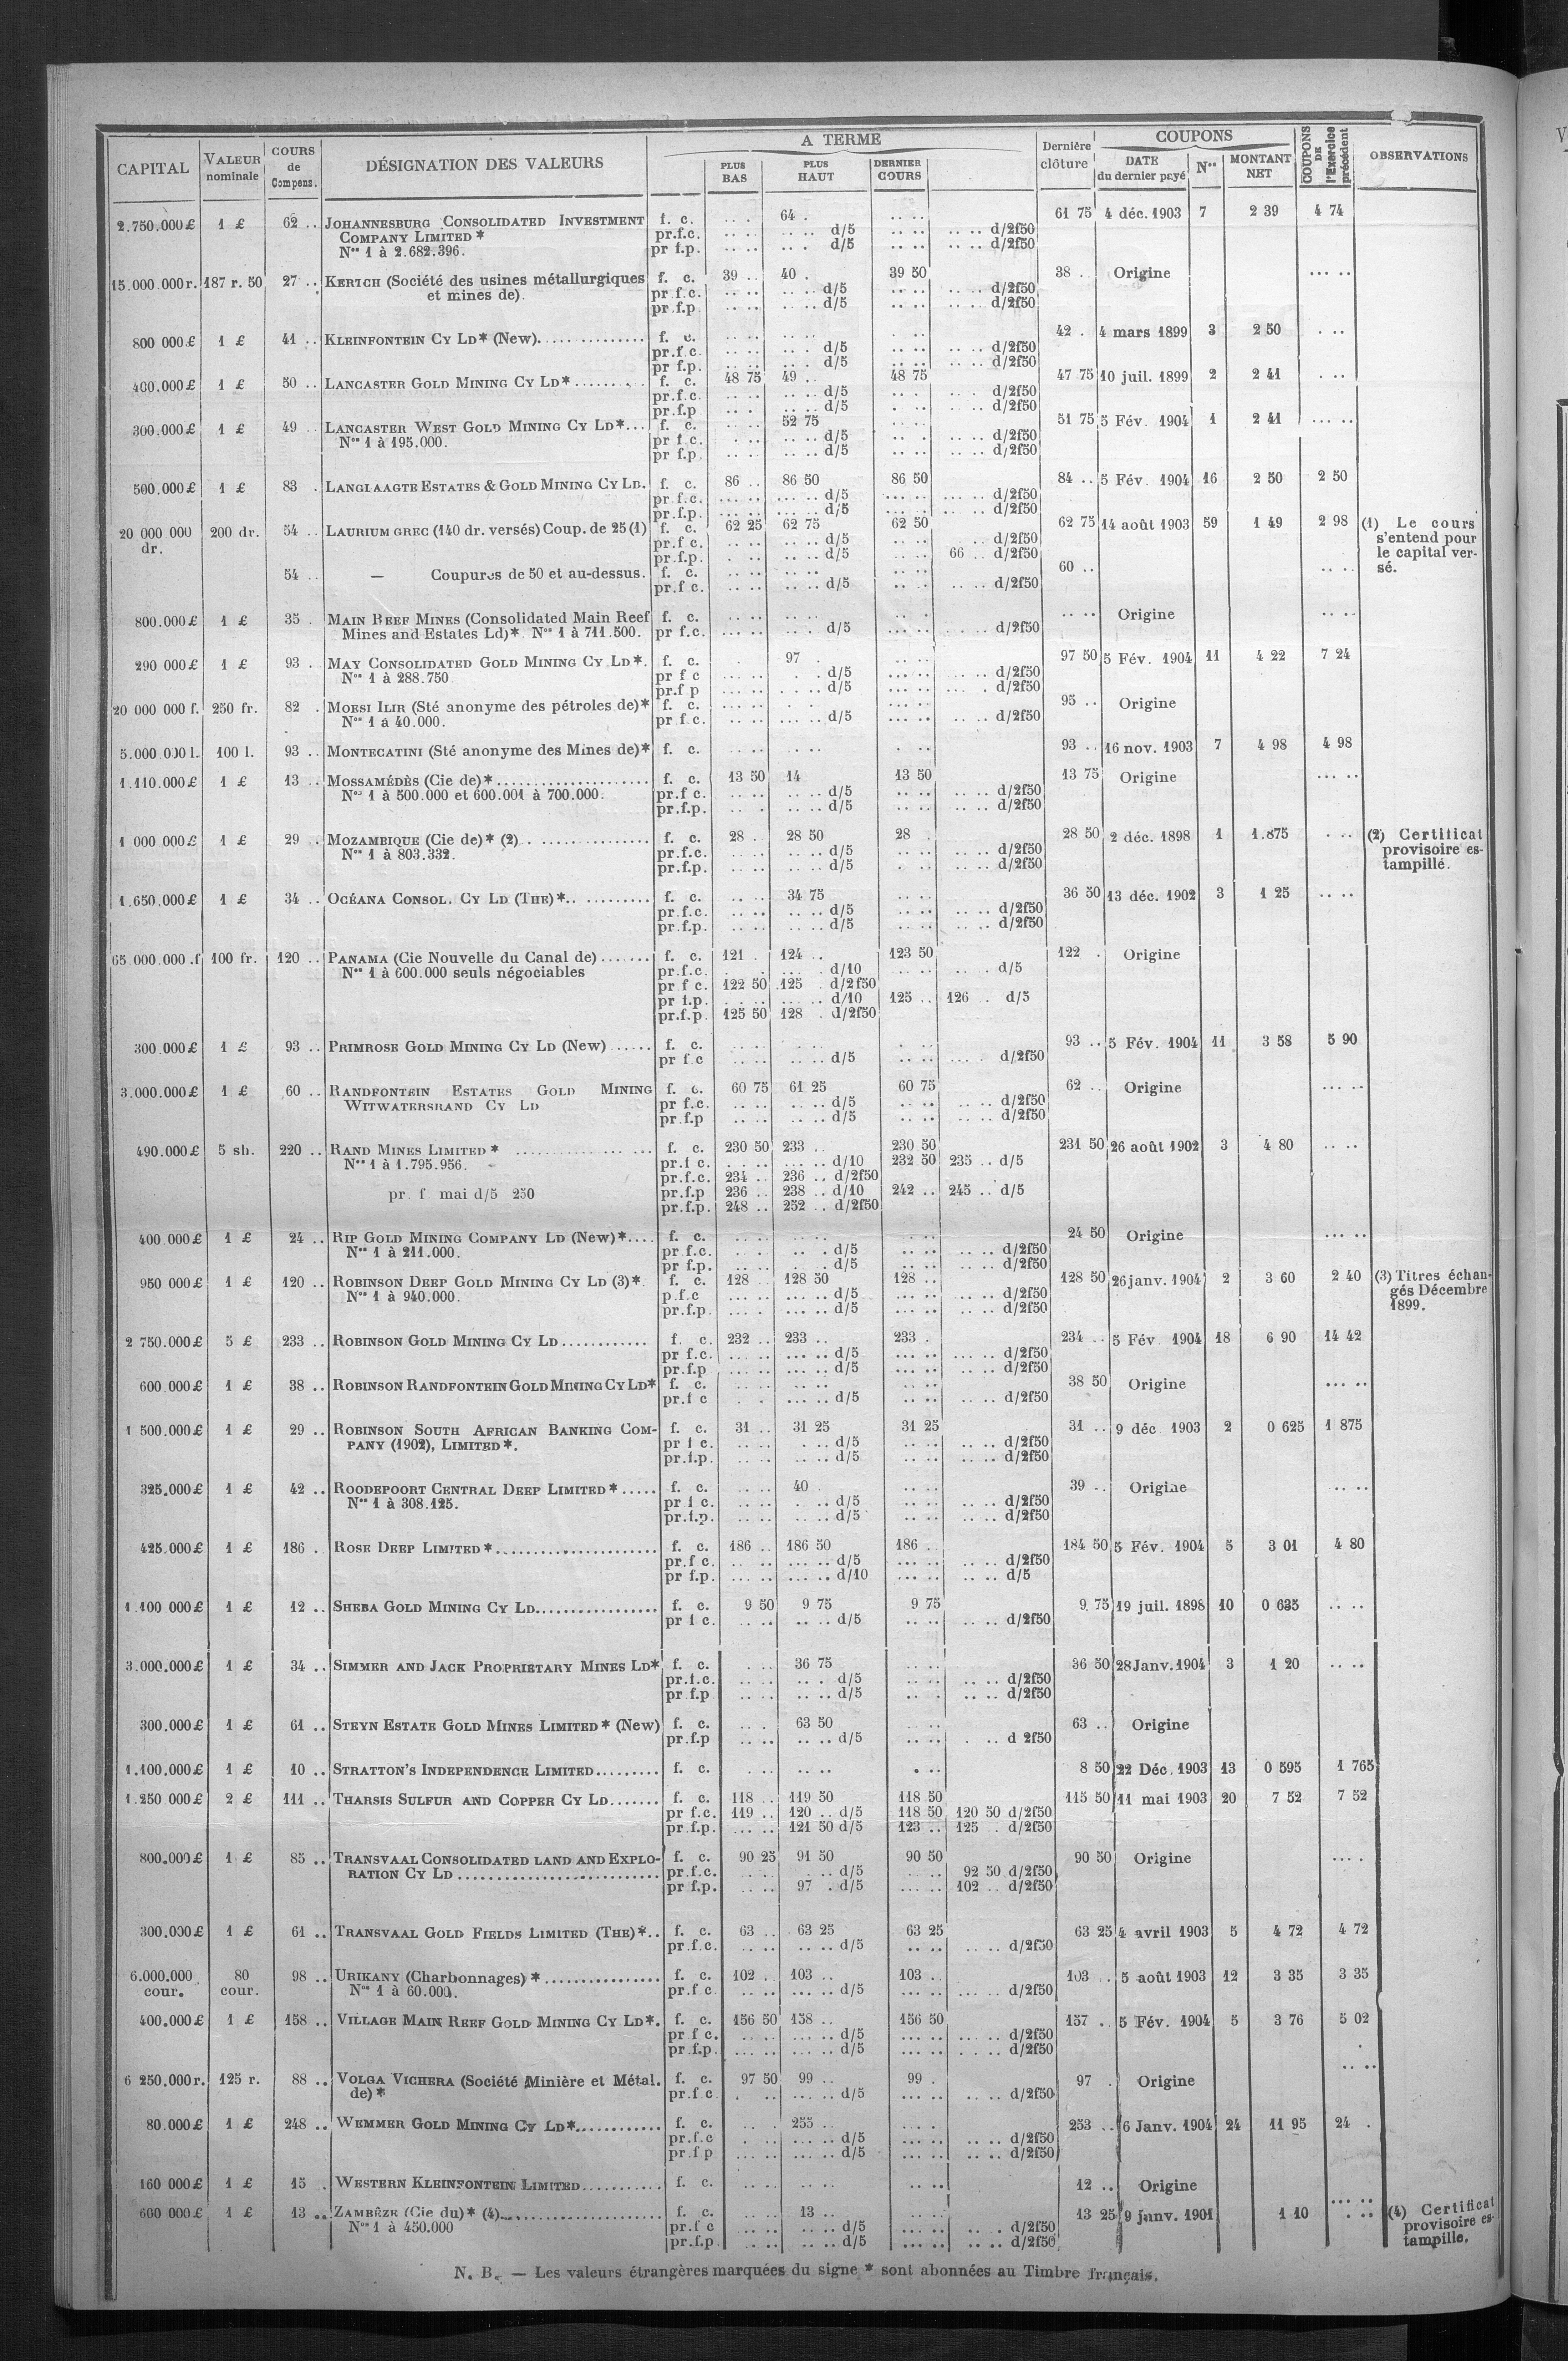 A TERME
COUPONS
CAPITAL VALEUR nominale COURS de Compens. DÉSIGNATION DES VALEURS PLUS BAS PLUS HAUT DERNIER COURS Dernière clôture DATE du dernier payé Nos MONTANT NET COUPONS DE l'Exercice précédent OBSERVATIONS
2.750.000£ 1 £ 62 .. JOHANNESBURG CONSOLIDATED INVESTMENT f. c. .. . 64 . .. .. 61 75 4 déc. 1903 7 2 39 4 74
COMPANY LIMITED * pr.f.c. .. .. .. .. d/5 .. .. .. .. d/2f50
Nos 1 à 2.682.396. pr f.p. .. .. .. . d/5 .. .. .. .. d/2f50
15.000.000r. 187 r. 50 27 .. KERTCH (Société des usines métallurgiques f. c. 39 .. 40 . 39 50 38 . Origine ... ..
et mines de). pr f.c. .. .. .. .. d/5 .. .. .. .. d/2f50
pr.f.p .. .. .. .. d/5 .. .. .. .. d/2f50
800 000£ 1 £ 41 .. KLEINFONTEIN CY LD* (New). f. c. .. .. .. .. .. .. 42 . 4 mars 1899 3 2 50 . ..
pr.f.c. .. .. .. . d/5 .. .. .. .. d/2f50
pr f.p. .. .. .. . d/5 .. .. .. .. d/2f50
400.000£ 1 £ 50 .. LANCASTER GOLD MINING CY LD*........ f. c. 48 75 49 .. 48 75 47 75 10 juil. 1899 2 2 41 . ..
pr.f.c. .. .. .. .. d/5 .. . .. .. d/2f50
pr.f.p .. . .. .. d/5 . .. .. .. d/2f50
300.000£ 1 £ 49 .. LANCASTER WEST GOLD MINING CY LD*... f. c. .. .. 52 75 .. .. 51 75 5 Fév. 1904 1 2 41 ... ..
Nos 1 à 195.000. pr f.c. . .. .. .. d/5 .. . .. .. d/2f50
pr f.p. .. .. .. .. d/5 .. .. .. .. d/2f50
500.000£ 1 £ 83 . LANGLAAGTE ESTATES & GOLD MINING CY LD. f. c. 86 .. 86 50 86 50 84 .. 5 Fév. 1904 16 2 50 2 50
pr.f.c. ... .. ... .. d/5 ... .. ... .. d/2f50
pr.f.p. ... .. ... .. d/5 ... .. ... .. d/2f50
20 000 000 dr. 200 dr. 54 .. LAURIUM GREC (140 dr. versés) Coup. de 25 (1) f. c. 62 25 62 75 62 50 62 75 14 août 1903 59 1 49 2 98 (1) Le cours
pr.f.c. .. .. .. .. d/5 .. .. .. d/2f50 s'entend pour
pr.f.p. . .. .. .. d/5 .. .. 66 .. d/2f50 le capital ver-
54 .. — Coupures de 50 et au-dessus. f. c. .. .. .. .. .. .. 60 .. .. .. sé.
pr.f c. .. .. .. .. d/5 .. .. .. .. d/2f50
800.000£ 1 £ 35 . MAIN REEF MINES (Consolidated Main Reef f. c. .. .. .. .. .. . .. .. Origine .. ..
Mines and Estates Ld)*. Nos 1 à 711.500. pr f.c. ... .. .. . d/5 ... .. . .. .. d/2f50
290 000£ 1 £ 93 . MAY CONSOLIDATED GOLD MINING CY LD*. f. c. . 97 . .. .. 97 50 5 Fév. 1904 11 4 22 7 24
Nos 1 à 288.750 pr f c ... .. . d/5 ... .. .. .. d/2f50
pr.f p ... .. . .. d/5 ... .. ... . d/2f50
20 000 000 f. 250 fr. 82 . MOESI ILIR (Sté anonyme des pétroles de)* f. c. .. . . .. .. . 95 .. Origine
Nos 1 à 40.000. pr f.c. .. .. ... .. d/5 ... .. .. .. d/2f50
5.000 000 l. 100 l. 93 .. MONTECATINI (Sté anonyme des Mines de)* f. c. .. .. .. .. . .. 93 .. 16 nov. 1903 7 4 98 4 98
1.110.000£ 1 £ 13 .. MOSSAMÉDÈS (Cie de)*..................... f. c. 13 50 14 13 50 13 75 Origine ... ..
Nos 1 à 500.000 et 600.001 à 700.000. pr.f c. .. .. .. .. d/5 .. .. .. .. d/2f50
pr.f.p. .. . .. .. d/5 .. .. .. .. d/2f50
1 000 000£ 1 £ 29 . MOZAMBIQUE (Cie de)* (2) . .............. f. c. 28 . 28 50 28 . 28 50 2 déc. 1898 1 1.875 . .. (2) Certificat
Nos 1 à 803.332. pr.f.c. .. .. .. .. d/5 .. .. .. .. d/2f50 provisoire es-
pr.f.p. .. .. .. .. d/5 . .. .. .. d/2f50 tampillé.
1.650.000£ 1 £ 34 .. OCÉANA CONSOL. CY LD (THE)*.. ......... f. c. .. .. 34 75 .. .. 36 50 13 déc. 1902 3 1 25 .. ..
pr.f.c. .. .. .. .. d/5 .. .. .. .. d/2f50
pr.f.p. .. .. .. .. d/5 .. .. .. .. d/2f50
65.000.000.f 100 fr. 120 .. PANAMA (Cie Nouvelle du Canal de)....... f. c. 121 . 124 .. 123 50 122 . Origine
Nos 1 à 600.000 seuls négociables pr.f.c. . .. ... . d/10 .. .. .. . d/5
pr f c. 122 50 125 . d/2f50
pr f.p. . .. .. ... .. d/10 125 .. 126 .. d/5
pr.f.p. 125 50 128 . d/2f50
300.000£ 1 £ 93 .. PRIMROSE GOLD MINING CY LD (New)...... f. c. .. . .. . . .. 93 .. 5 Fév. 1904 11 3 58 5 90
pr f c .. .. .. .. d/5 .. .. ... . d/2f50
3.000.000£ 1 £ 60 .. RANDFONTEIN ESTATES GOLD MINING f. c. 60 75 61 25 60 75 62 .. Origine ... ..
WITWATERSRAND CY LD pr f.c. .. .. .. .. d/5 .. .. .. .. d/2f50
pr.f.p .. .. .. .. d/5 .. .. .. .. d/2f50
490.000£ 5 sh. 220 .. RAND MINES LIMITED * f. c. 230 50 233 .. 230 50 231 50 26 août 1902 3 4 80 .. ..
Nos 1 à 1.795.956. pr.f c. . .. .. ... .. d/10 232 50 235 .. d/5
pr.f.c. 234 .. 236 .. d/2f50
pr. f mai d/5 250 pr.f.p 236 .. 238 .. d/10 242 .. 245 .. d/5
pr.f.p. 248 .. 252 .. d/2f50
400.000£ 1 £ 24 .. RIP GOLD MINING COMPANY LD (New)*.... f. c. .. .. .. .. .. .. 24 50 Origine ... ..
Nos 1 à 211.000. pr f.c. .. . .. . d/5 .. .. .. .. d/2f50
pr f.p. .. .. . . d/5 .. .. .. .. d/2f50
950 000£ 1 £ 120 .. ROBINSON DEEP GOLD MINING CY LD (3)*. f. c. 128 .. 128 50 128 .. 128 50 26 janv. 1904 2 3 60 2 40 (3) Titres échan-
Nos 1 à 940.000. p.f.c ... .. ... .. d/5 ... .. .. .. d/2f50 gés Décembre
pr.f.p. ... . ... .. d/5 ... .. .. .. d/2f50 1899.
2 750.000£ 5 £ 233 .. ROBINSON GOLD MINING CY LD............ f. c. 232 .. 233 .. 233 . 234 .. 5 Fév. 1904 18 6 90 14 42
pr f.c. ... .. ... .. d/5 ... .. ... .. d/2f50
pr.f.p ... .. ... .. d/5 ... .. ... .. d/2f50
600.000£ 1 £ 38 .. ROBINSON RANDFONTEIN GOLD MINING CY LD* f. c. .. .. .. .. .. .. 38 50 Origine ... ..
pr.f c . . ... .. d/5 .. .. .. .. d/2f50
1 500.000£ 1 £ 29 .. ROBINSON SOUTH AFRICAN BANKING COM- f. c. 31 .. 31 25 31 25 31 .. 9 déc 1903 2 0 625 1 875
PANY (1902), LIMITED*. pr f c. .. .. . .. d/5 .. .. .. .. d/2f50
pr.f.p. .. .. .. .. d/5 .. .. .. .. d/2f50
325.000£ 1 £ 42 .. ROODEPOORT CENTRAL DEEP LIMITED*..... f. c. .. .. 40 . .. .. 39 .. Origine .. ..
Nos 1 à 308.125. pr f c. .. .. . .. d/5 .. .. .. .. d/2f50
pr.f.p. .. .. .. .. d/5 .. .. .. .. d/2f50
425.000£ 1 £ 186 . ROSE DEEP LIMITED*..................... f. c. 186 .. 186 50 186 .. 184 50 5 Fév. 1904 5 3 01 4 80
pr.f c. ... .. ... .. d/5 ... .. .. .. d/2f50
pr f.p. ... .. ... .. d/10 ... .. .. .. d/5
1.100 000£ 1 £ 12 .. SHEBA GOLD MINING CY LD................ f. c. 9 50 9 75 9 75 9 75 19 juil. 1898 10 0 635 .. ..
pr f c. .. .. .. .. d/5 .. .. .. .. d/2f50
3.000.000£ 1 £ 34 .. SIMMER AND JACK PROPRIETARY MINES LD* f. c. . .. 36 75 .. .. 36 50 28 Janv. 1904 3 1 20 .. ..
pr.f.c. .. .. .. . d/5 .. .. .. .. d/2f50
pr f.p .. .. .. .. d/5 .. . .. .. d/2f50
300.000£ 1 £ 61 .. STEYN ESTATE GOLD MINES LIMITED* (New) f. c. .. . 63 50 .. .. 63 .. Origine
pr.f.p .. .. .. .. d/5 .. .. . .. d 2f50
1.100.000£ 1 £ 10 .. STRATTON'S INDEPENDENCE LIMITED......... f. c. .. .. . .. 8 50 22 Déc. 1903 13 0 595 1 765
1.250 000£ 2 £ 111 .. THARSIS SULFUR AND COPPER CY LD....... f. c. 118 .. 119 50 118 50 115 50 11 mai 1903 20 7 52 7 52
pr f.c. 119 .. 120 .. d/5 118 50 120 50 d/2f50
pr.f.p. ... .. 121 50 d/5 123 .. 125 . d/2f50
800.000£ 1 £ 85 .. TRANSVAAL CONSOLIDATED LAND AND EXPLO- f. c. 90 25 91 50 90 50 90 50 Origine ... .
RATION CY LD .......................... pr.f.c. .. . . .. d/5 .. .. 92 50 d/2f50
pr f.p. .. .. 97 . d/5 ... .. 102 .. d/2f50
300.000£ 1 £ 61 .. TRANSVAAL GOLD FIELDS LIMITED (THE)*.. f. c. 63 .. 63 25 63 25 63 25 4 avril 1903 5 4 72 4 72
pr.f.c. .. .. .. .. d/5 .. .. .. .. d/2f50
6.000.000 cour. 80 cour. 98 .. URIKANY (Charbonnages) *................ f. c. 102 .. 103 .. 103 .. 103 .. 5 août 1903 12 3 35 3 35
Nos 1 à 60.000. pr.f c. .. .. ... .. d/5 ... .. ... .. d/2f50
400.000£ 1 £ 158 .. VILLAGE MAIN REEF GOLD MINING CY LD*. f. c. 156 50 158 .. 156 50 157 . 5 Fév. 1904 5 3 76 5 02
pr f c. ... .. ... .. d/5 ... .. ... .. d/2f50
pr.f.p. ... .. ... .. d/5 ... .. . .. .. d/2f50
6 250.000r. 125 r. 88 .. VOLGA VICHERA (Société Minière et Métal. f. c. 97 50 99 .. 99 . 97 . Origine .. ..
de)* pr.f.c. . .. ... .. d/5 ... .. .. .. d/2f50
80.000£ 1 £ 248 .. WEMMER GOLD MINING CY LD*............ f. c. .. . 255 .. ... . 253 .. 6 Janv. 1904 24 11 95 24 .
pr.f.c . .. ... .. d/5 ... .. .. .. d/2f50
pr.f p ... .. ... .. d/5 ... .. .. .. d/2f50
160 000£ 1 £ 15 . WESTERN KLEINFONTEIN LIMITED........... f. c. .. .. .. .. .. .. 12 .. Origine
600 000£ 1 £ 13 .. ZAMBÈZE (Cie du)* (4)...................... f. c. 13 .. 13 25 9 janv. 1901 1 10 . .. (4) Certificat
Nos 1 à 450.000 pr.f c .. .. .. .. d/5 ... .. .. . d/2f50 provisoire es-
pr.f.p. .. .. .. .. d/5 ... .. .. .. d/2f50 tampillé.
N. B. — Les valeurs étrangères marquées du signe * sont abonnées au Timbre français.